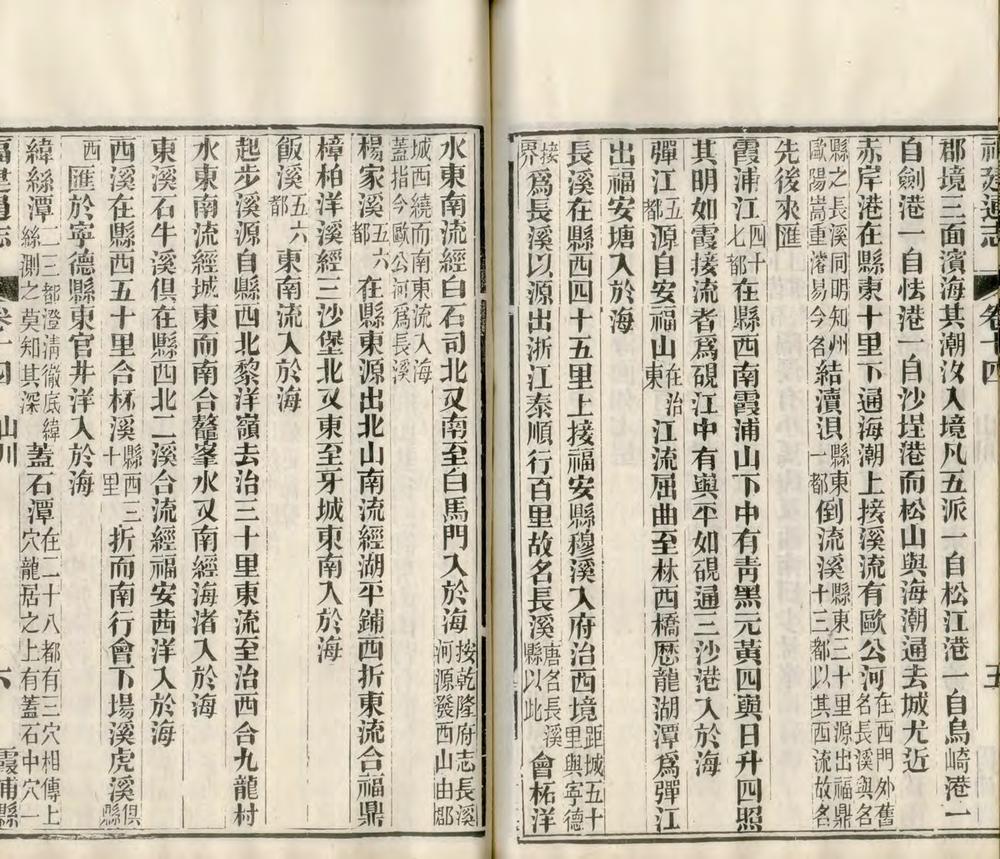 福建通志 卷十四 山川 五
郡境三面濱海其潮汐入境凡五派一自松江港一自烏崎港一
自劍港一自怯港一自沙埕港而松山與海潮通去城尤近
赤岸港在縣東十里下通海潮上接溪流有歐公河在西門外舊名長溪與名
縣之長溪同明知州歐陽嵩重濬易今名結瀆浿縣東一都倒流溪縣東三十里源出福鼎十三都以其西流故名
先後來匯
霞浦江四十七都在縣西南霞浦山下中有靑黑元黃四與日升四照
其明如霞接流者爲硯江中有與平如硯通三沙港入於海
彈江五都源自安福山在治東江流屈曲至林西橋歷龍湖潭爲彈江
出福安塘入於海
長溪在縣西四十五里上接福安縣穆溪入府治西境距城五十里與寧德
接界爲長溪以源出浙江泰順行百里故名長溪唐名長溪縣以此會柘洋
水東南流經白石司北又南至白馬門入於海按乾隆府志長溪河源發西山由郡
城西繞而南東流入海蓋指今歐公河爲長溪
楊家溪五六都在縣東源出北山南流經湖平鋪西折東流合福鼎
樟柏洋溪經三沙堡北又東至牙城東南入於海
飯溪五六都東南流入於海
起步溪源自縣西北黎洋嶺去治三十里東流至治西合九龍村
水東南流經城東而南合鼇峯水又南經海渚入於海
東溪石牛溪俱在縣西北二溪合流經福安茜洋入於海
西溪在縣西五十里合杯溪縣西三十里折而南行會下場溪虎溪俱縣
西匯於寧德縣東官井洋入於海
緯絲潭二三都澄淸徹底緯絲測之莫知其深蓋石潭在二十八都有三穴相傳上穴龍居之上有蓋石中穴一
福建通志 卷十四 山川 六 霞浦縣